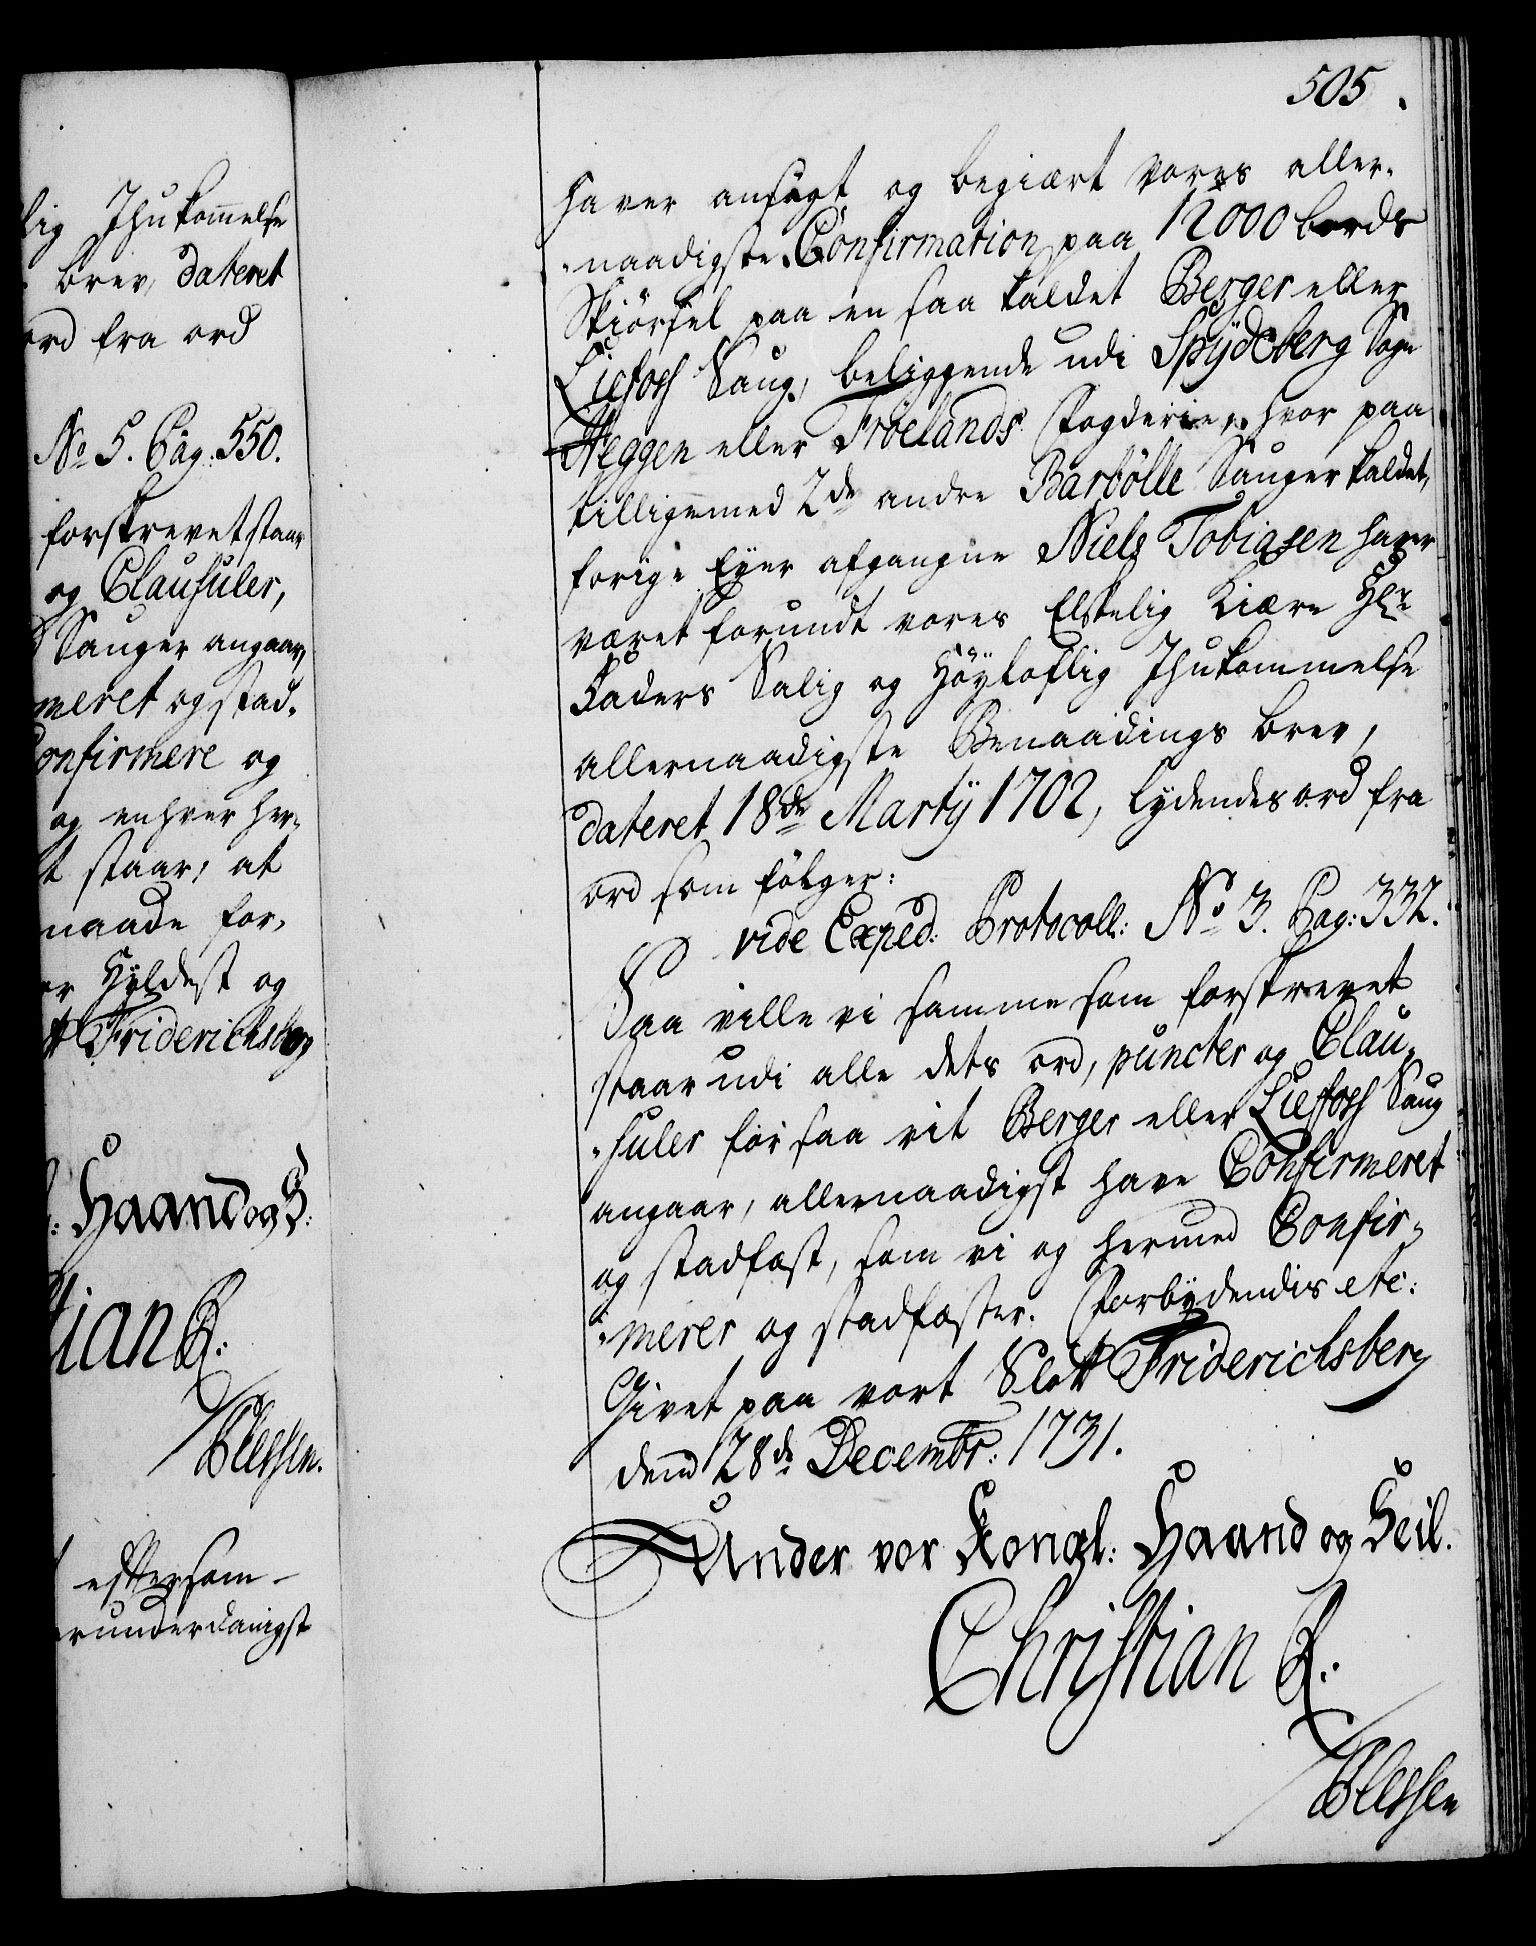 lig Ihukom̅else
brev, dateret
ord fra ord
No 5. Pag: 550.
forskrevet staar
og Clausuler,
Sauger angaar,
meret og stad-
Confirmere og
og enhver her-
t staar, at
naade for-
er Hyldest og
tt Friderichsberg
: Haand og S:
tian R:
Plessen.
eftersom
erunderdanigst
505.
haver ansøgt og begiært Vores aller-
-naadigste Confirmation paa 12000 bords
Skiørsel paa en saa kaldet Berger eller
Liefoss Saug, beliggende udi Spydeberg Sogn
Heggen eller Frøelands Fogderie, hvor paa
tilligemed 2de andre Barbølle Sauger kaldet,
forige Eyer afgangne Niels Tobiasen haver
været forundt vores Elskelig Kiære Hr
Faders Salig og Høyloflig Ihukommelse
allernaadigste Benaadings brev,
dateret 18de Martÿ 1702, lydendes ord fra
ord som følger:
vide Exped: Protocoll: No 3. Pag: 332.
Saa ville vi samme som forskrevet
staar udi alle dets ord, puncter og Clau-
-suler for saa vit Berger eller Liefoss Saug
angaar, allernaadigst have Confirmeret
og stadfæst, som vi og hermed Confir-
-merer og stadfæster. Forbydendis etc:
Givet paa vort Slott Friderichsberg
dend 28de Decembr: 1731.
Under vor Kongl: Haand og Seil.
Christian R:
Plessen